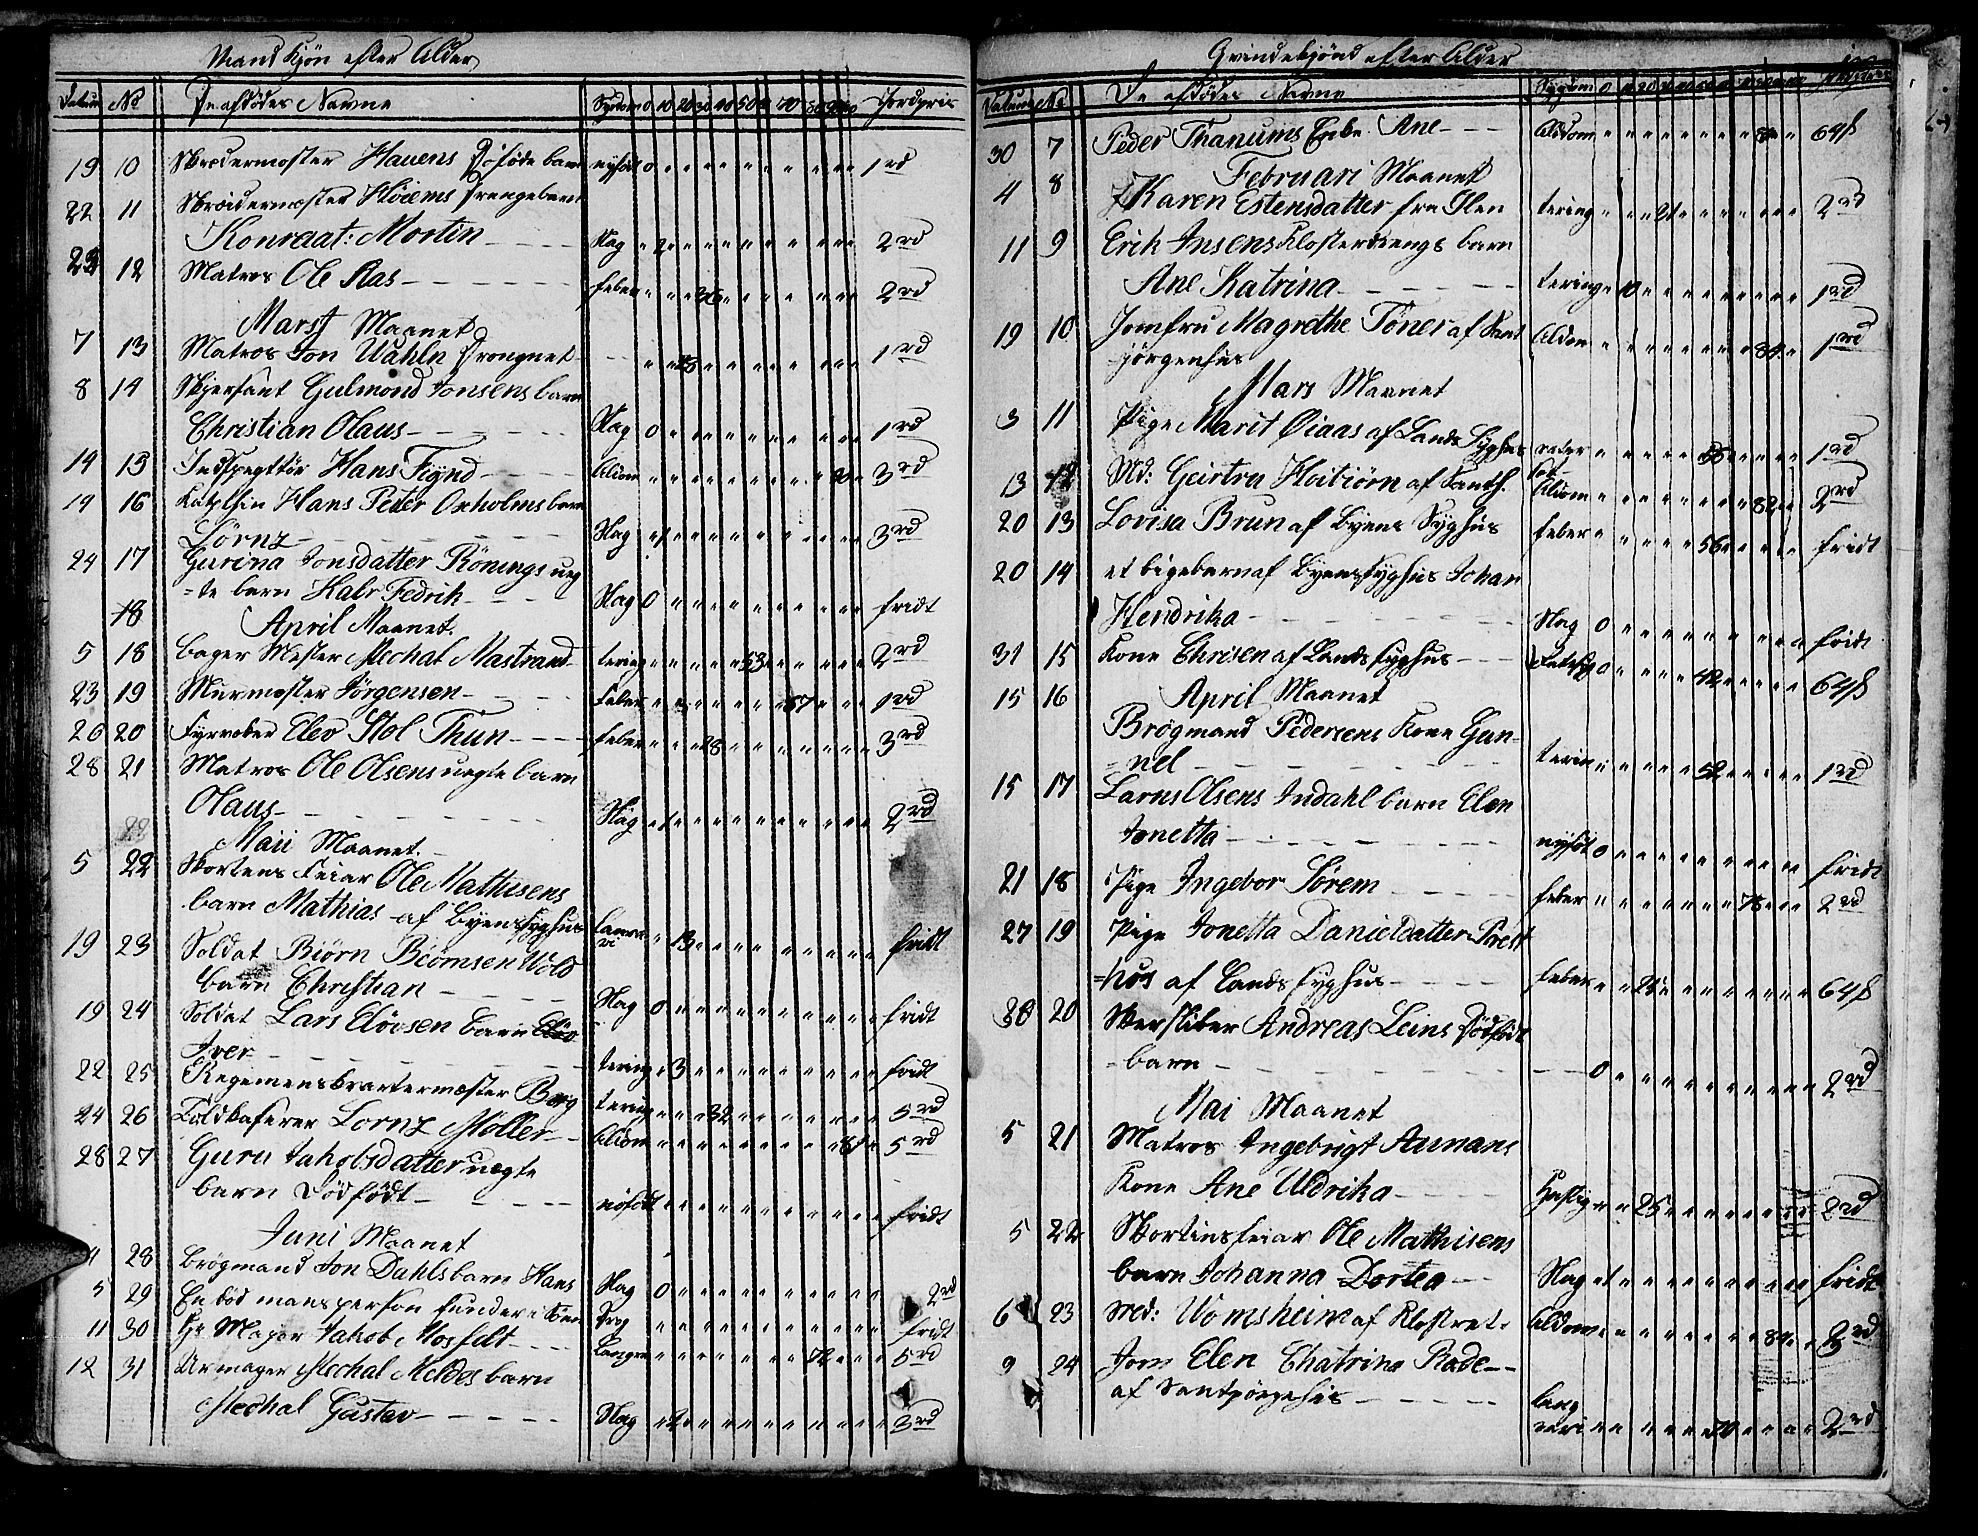 Mand Kjön efter Alder
Datum No De afdödes Navne Sygdom 0 10 20 30 40 50 70 Jordpris
19 10 Skredermester Hauens Döføde barn nyföd 0 1 rd
22 11 Skreidermester Höiems Drengebarn
Konraat: Mortin Slag 2 2 rd
23 12 Matros Ole Aas feber 36 2 rd
Marsj Maanet
7 13 Matros Jon Wahln Drongnet 28 1 rd
8 14 Skjersant Gulmond Jonsens barn
Christian Olaus Slag 0 1 rd
14 15 Indspegttör Hans Fignd Aldom 3 rd
14 16 Hans Peter Oxholms barn
Lörnz Slag 3 rd
24 17 Gurina Jonsdatter Rönings ueg
=te barn Kabr Fedrik Slag 0 fridt
18 April Maanet.
5 18 bager Mester Mechal Mastrand tering 53 2 rd
23 19 Murmester Jörgensen Feber 67 1 rd
26 20 Fyrvober Elev Stol Thun feber 28 3 rd
28 21 Matros Ole Olsens uegte barn
Olaus Slag 1 2 rd
22
Maii Maanet.
5 22 Skortens Feiar Ole Mathisens
barn Mathias af Byens syghus 13 fridt
19 23 Soldat Biörn Beornsen Wold
barn Christian Slag 0 fridt
19 24 Soldat Lars Elövsen barn
Iver tering 3 fridt
22 25 Regemenskvartermester Berg tering 32 5 rd
24 26 Toldkaserer Lornz Möller Aldom 81 5 rd
28 27 Guru Jakobsdatter uegte
barn Dödfödt nöfödt fridt
Juni Maanet
4 28 Brögmand Jon Dahls barn Hans Slag 0 2 rd
5 29 En död mansperson funden i fridt
11 30 Hr Major Jakob Mosfelt 72 5 rd
12 31 Urmager Mechal Meldes barn
Mechal Gustav Slag 2 3 rd
Qvindekjönd efter Alder
Datum No De afdödes Navne Sygdom 0 10 20
30 7 Peder Thanums Enke Ane Aldom 64 ß
Februari Maanet
4 8 Karen Estensdatter fra Ilen tering 21 2 rd
11 9 Erik Jnsens Klosterdrengs barn
Ane Katrina tering 10 1 rd
19 10 Jomfru Magrethe Töner af Sant
jörgenhus Aldom 84 1 rd
Mars Maanet
3 11 Pige Marit Öiaas af Lands Syghus 1 rd
13 12 Md: Geirtru Hoitiörn af Santh. Aldom 82 2 rd
20 13 Lovisa Brun af Byens Syghus feber 56 fridt
20 14 et bigebarn af Byens syghus Johan
Hendrika Slag 0 fridt
31 15 Kone Chrisen af Lands syghus 42 64 ß
April Maanet
15 16 Brögmand Pedersens Kone Gun-
nel terin 52 1 rd
15 17 Larns Olsens Indahl barn Elen
Jonetta nyföt 0 fridt
21 18 Pige Ingebor Sörem feber 75 2 rd
27 19 Pige Jonetta Danieldatter Prest
=hus af Lands syghus feber 25 64 ß
30 20 Skersliber Andreas Leins Dödfödt
barn 0 2 rd
Mai Maanet
5 21 Matros Ingebrigt Aumans
Kone Ane Uldrika Hastig 25 2 rd
5 22 Skortinsfeiar Ole Mathisens
barn Johanna Dortea Slag 1 fridt
6 23 Md: Womsheim af Klostret Aldom 84 3 rd
9 24 Jom Elen Chatrina Rode
af Santjörgehus lang
veri 70 2 rd